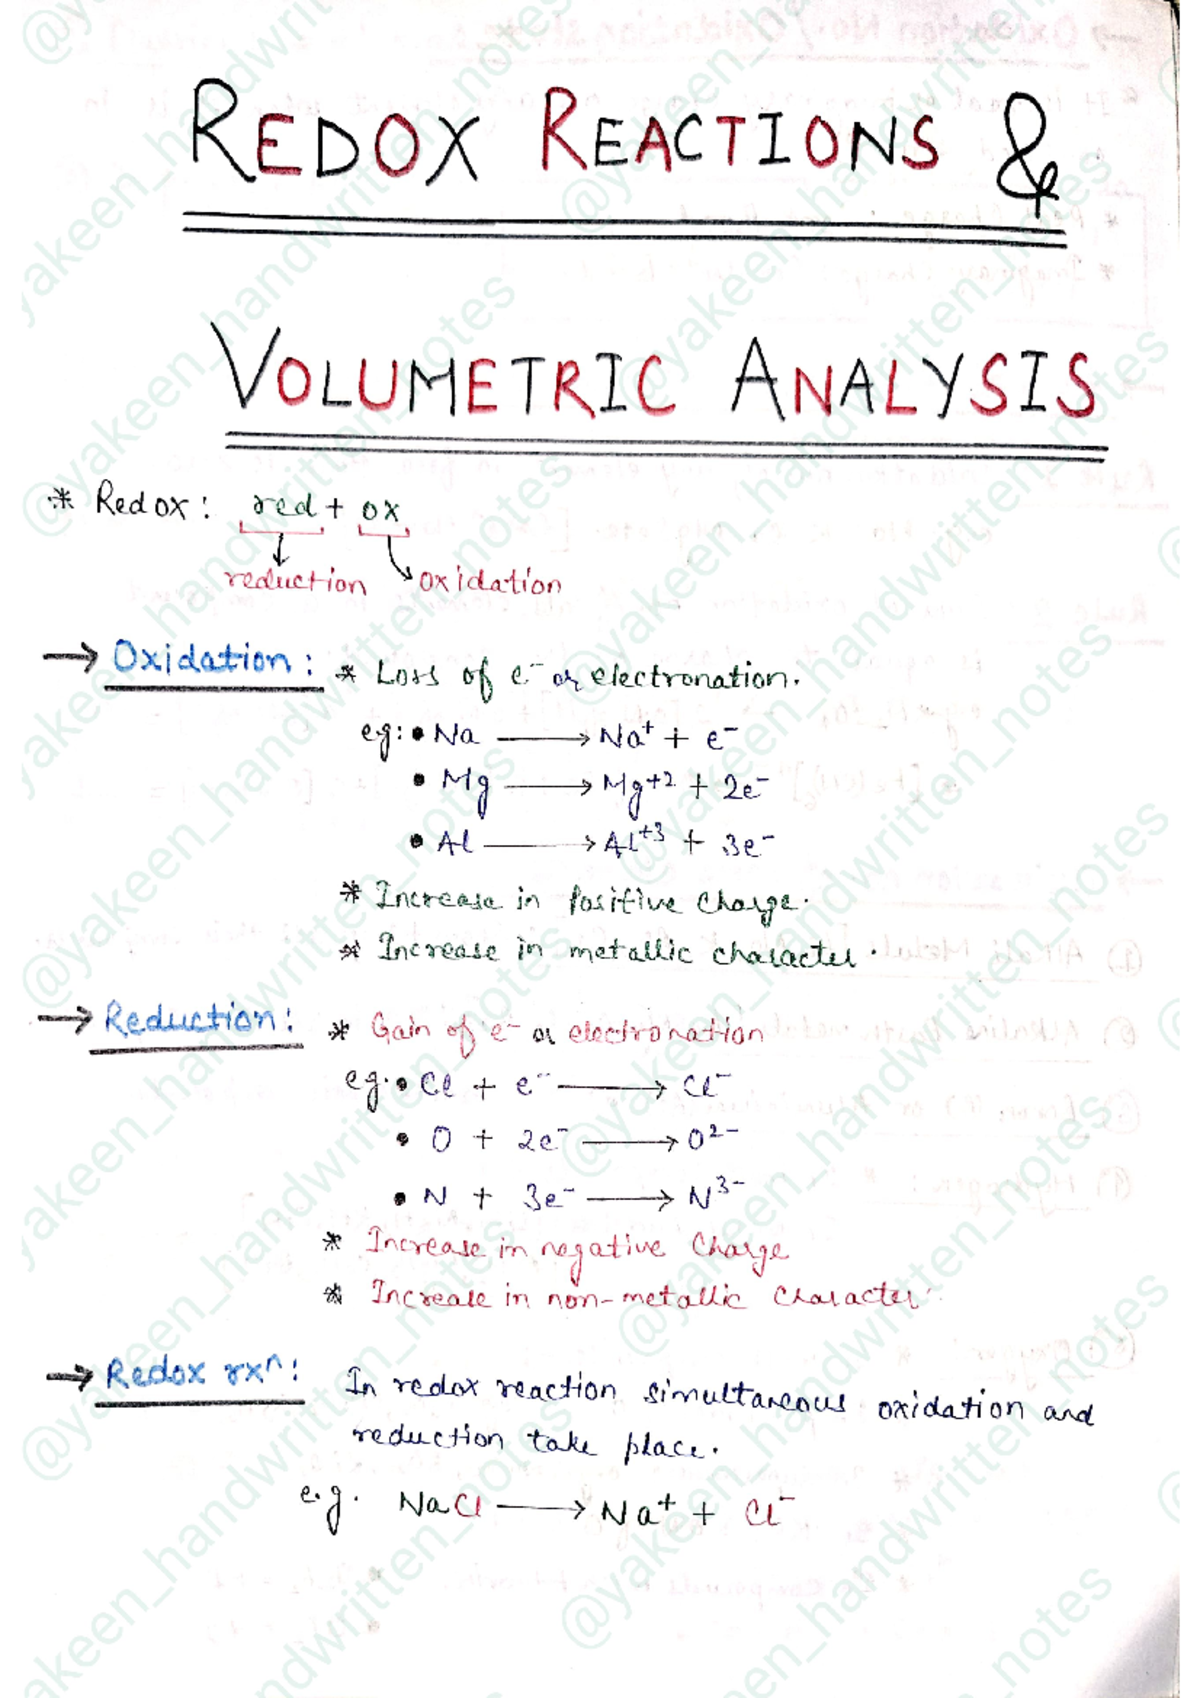 REDOX REACTIONS &
VOLUMETRIC ANALYSIS
* Redox: red + ox
reduction oxidation
→ Oxidation: * Loss of e⁻ or electronation.
eg: • Na ⟶ Na⁺ + e⁻
• Mg ⟶ Mg⁺² + 2e⁻
• Al ⟶ Al⁺³ + 3e⁻
* Increase in Positive Charge.
* Increase in metallic character.
→ Reduction: * Gain of e⁻ or electronation
eg. • Cl + e⁻ ⟶ Cl⁻
• O + 2e⁻ ⟶ O²⁻
• N + 3e⁻ ⟶ N³⁻
* Increase in negative Charge
* Increase in non-metallic character.
→ Redox rxⁿ: In redox reaction simultaneous oxidation and
reduction take place.
e.g. NaCl ⟶ Na⁺ + Cl⁻
@yakeen_handwritten_notes